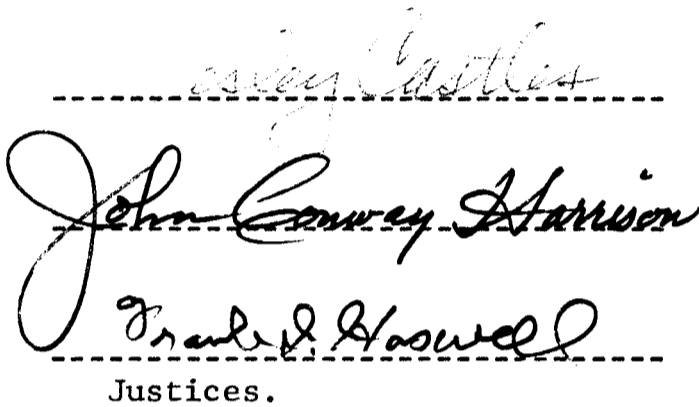 esley Castles
John Conway Harrison
Frank I. Haswell
Justices.